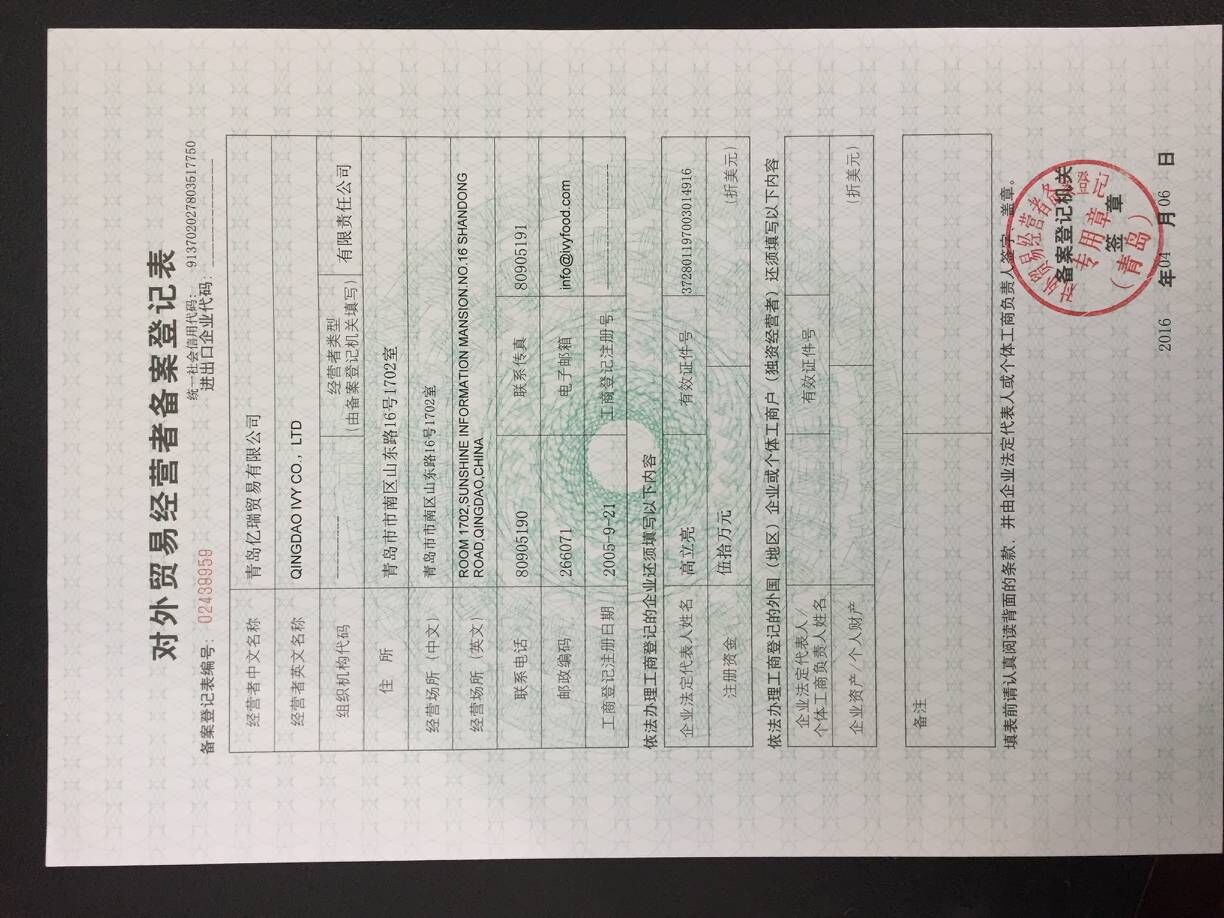 对外贸易经营者备案登记表
统一社会信用代码： 913702027803517750
备案登记表编号： 02438959 进出口企业代码：
经营者中文名称 青岛亿瑞贸易有限公司
经营者英文名称 QINGDAO IVY CO., LTD
组织机构代码 经营者类型 （由备案登记机关填写） 有限责任公司
住 所 青岛市市南区山东路16号1702室
经营场所（中文） 青岛市市南区山东路16号1702室
经营场所（英文） ROOM 1702,SUNSHINE INFORMATION MANSION.NO.16 SHANDONG
ROAD,QINGDAO,CHINA
联系电话 80905190 联系传真 80905191
邮政编码 266071 电子邮箱 info@ivyfood.com
工商登记注册日期 2005-9-21 工商登记注册号
依法办理工商登记的企业还须填写以下内容
企业法定代表人姓名 高立亮 有效证件号 372801197003014916
注册资金 伍拾万元 （折美元）
依法办理工商登记的外国（地区）企业或个体工商户（独资经营者）还须填写以下内容
企业法定代表人/
个体工商负责人姓名 有效证件号
企业资产/个人财产 （折美元）
备注
填表前请认真阅读背面的条款，并由企业法定代表人或个体工商负责人签字、盖章。
备案登记机关
签 章
对外贸易经营者备案登记
专用章
（青岛）
2016 年 04 月 06 日